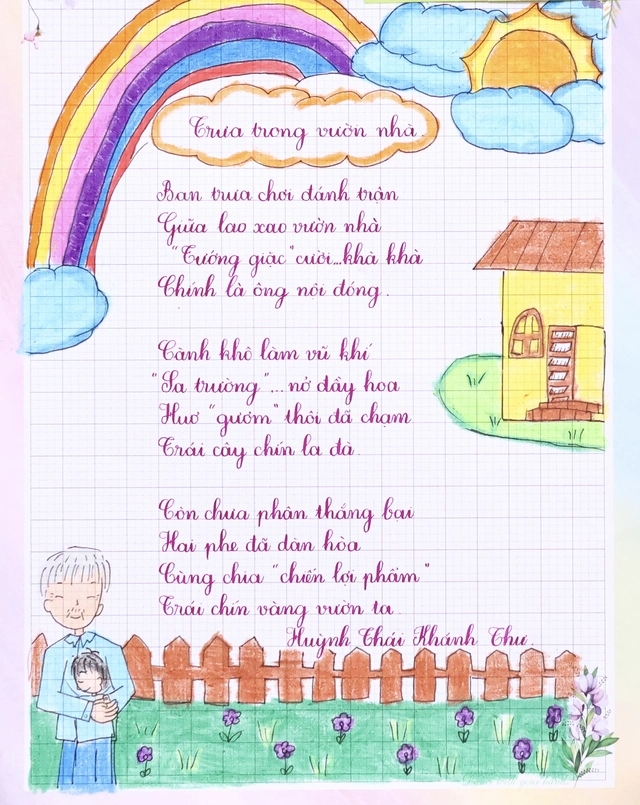 Trưa trong vườn nhà.
Ban trưa chơi đánh trận
Giữa lao xao vườn nhà
"Tướng giặc" cười...khà khà
Chính là ông nội đóng.
Cành khô làm vũ khí
"Sa trường"... nở đầy hoa
Huơ "gươm" thôi đã chạm
Trái cây chín la đà.
Còn chưa phân thắng bại
Hai phe đã dàn hòa
Cùng chia "chiến lợi phẩm"
Trái chín vàng vườn ta.
Huỳnh Thái Khánh Thư.